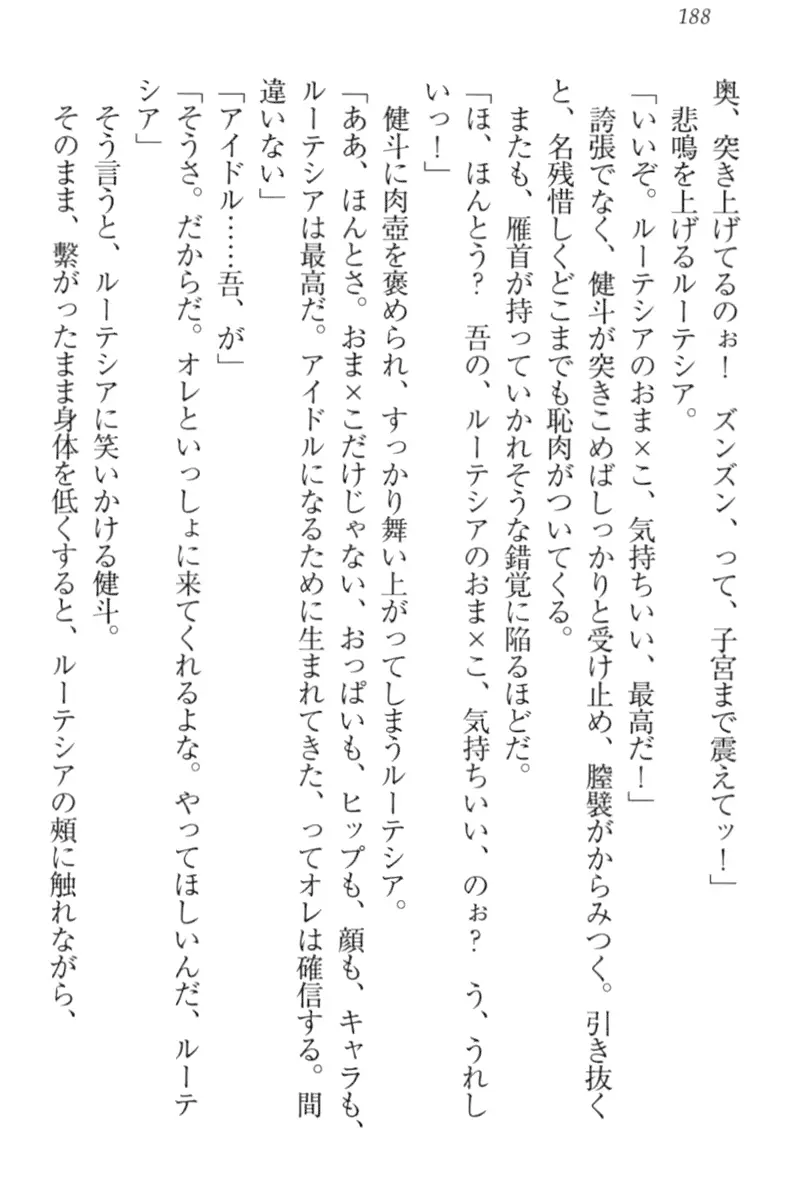 188
奥、突き上げてるのぉ！　ズンズン、って、子宮まで震えてッ！」
悲鳴を上げるルーテシア。
「いいぞ。ルーテシアのおま×こ、気持ちいい、最高だ！」
誇張でなく、健斗が突きこめばしっかりと受け止め、膣襞がからみつく。引き抜く
と、名残惜しくどこまでも恥肉がついてくる。
またも、雁首が持っていかれそうな錯覚に陥るほどだ。
「ほ、ほんとう？　吾の、ルーテシアのおま×こ、気持ちいい、のぉ？　う、うれし
いっ！」
健斗に肉壺を褒められ、すっかり舞い上がってしまうルーテシア。
「ああ、ほんとさ。おま×こだけじゃない、おっぱいも、ヒップも、顔も、キャラも、
ルーテシアは最高だ。アイドルになるために生まれてきた、ってオレは確信する。間
違いない」
「アイドル……吾、が」
「そうさ。だからだ。オレといっしょに来てくれるよな。やってほしいんだ、ルーテ
シア」
そう言うと、ルーテシアに笑いかける健斗。
そのまま、繫がったまま身体を低くすると、ルーテシアの頰に触れながら、